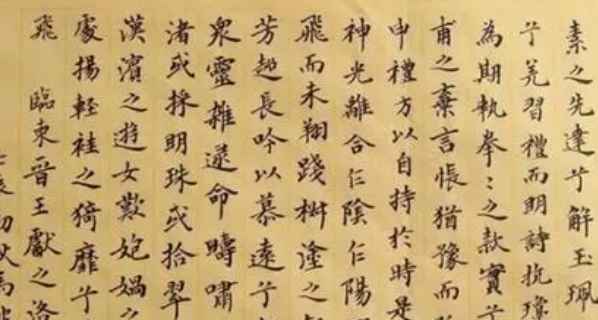 素之先達兮解玉珮
兮羌習禮而明詩抗瓊
為期執拳〻之款實兮
甫之棄言悵猶豫而
申禮方以自持於時是
神光離合乍陰乍陽
飛而未翔踐椒塗之
芳超長吟以慕遠兮
衆靈雜遝命疇嘯
渚或採明珠或拾翠
漢濱之遊女歎匏媧之
處揚輕袿之猗靡兮
飛 臨東晉王獻之洛
辰初秋馬